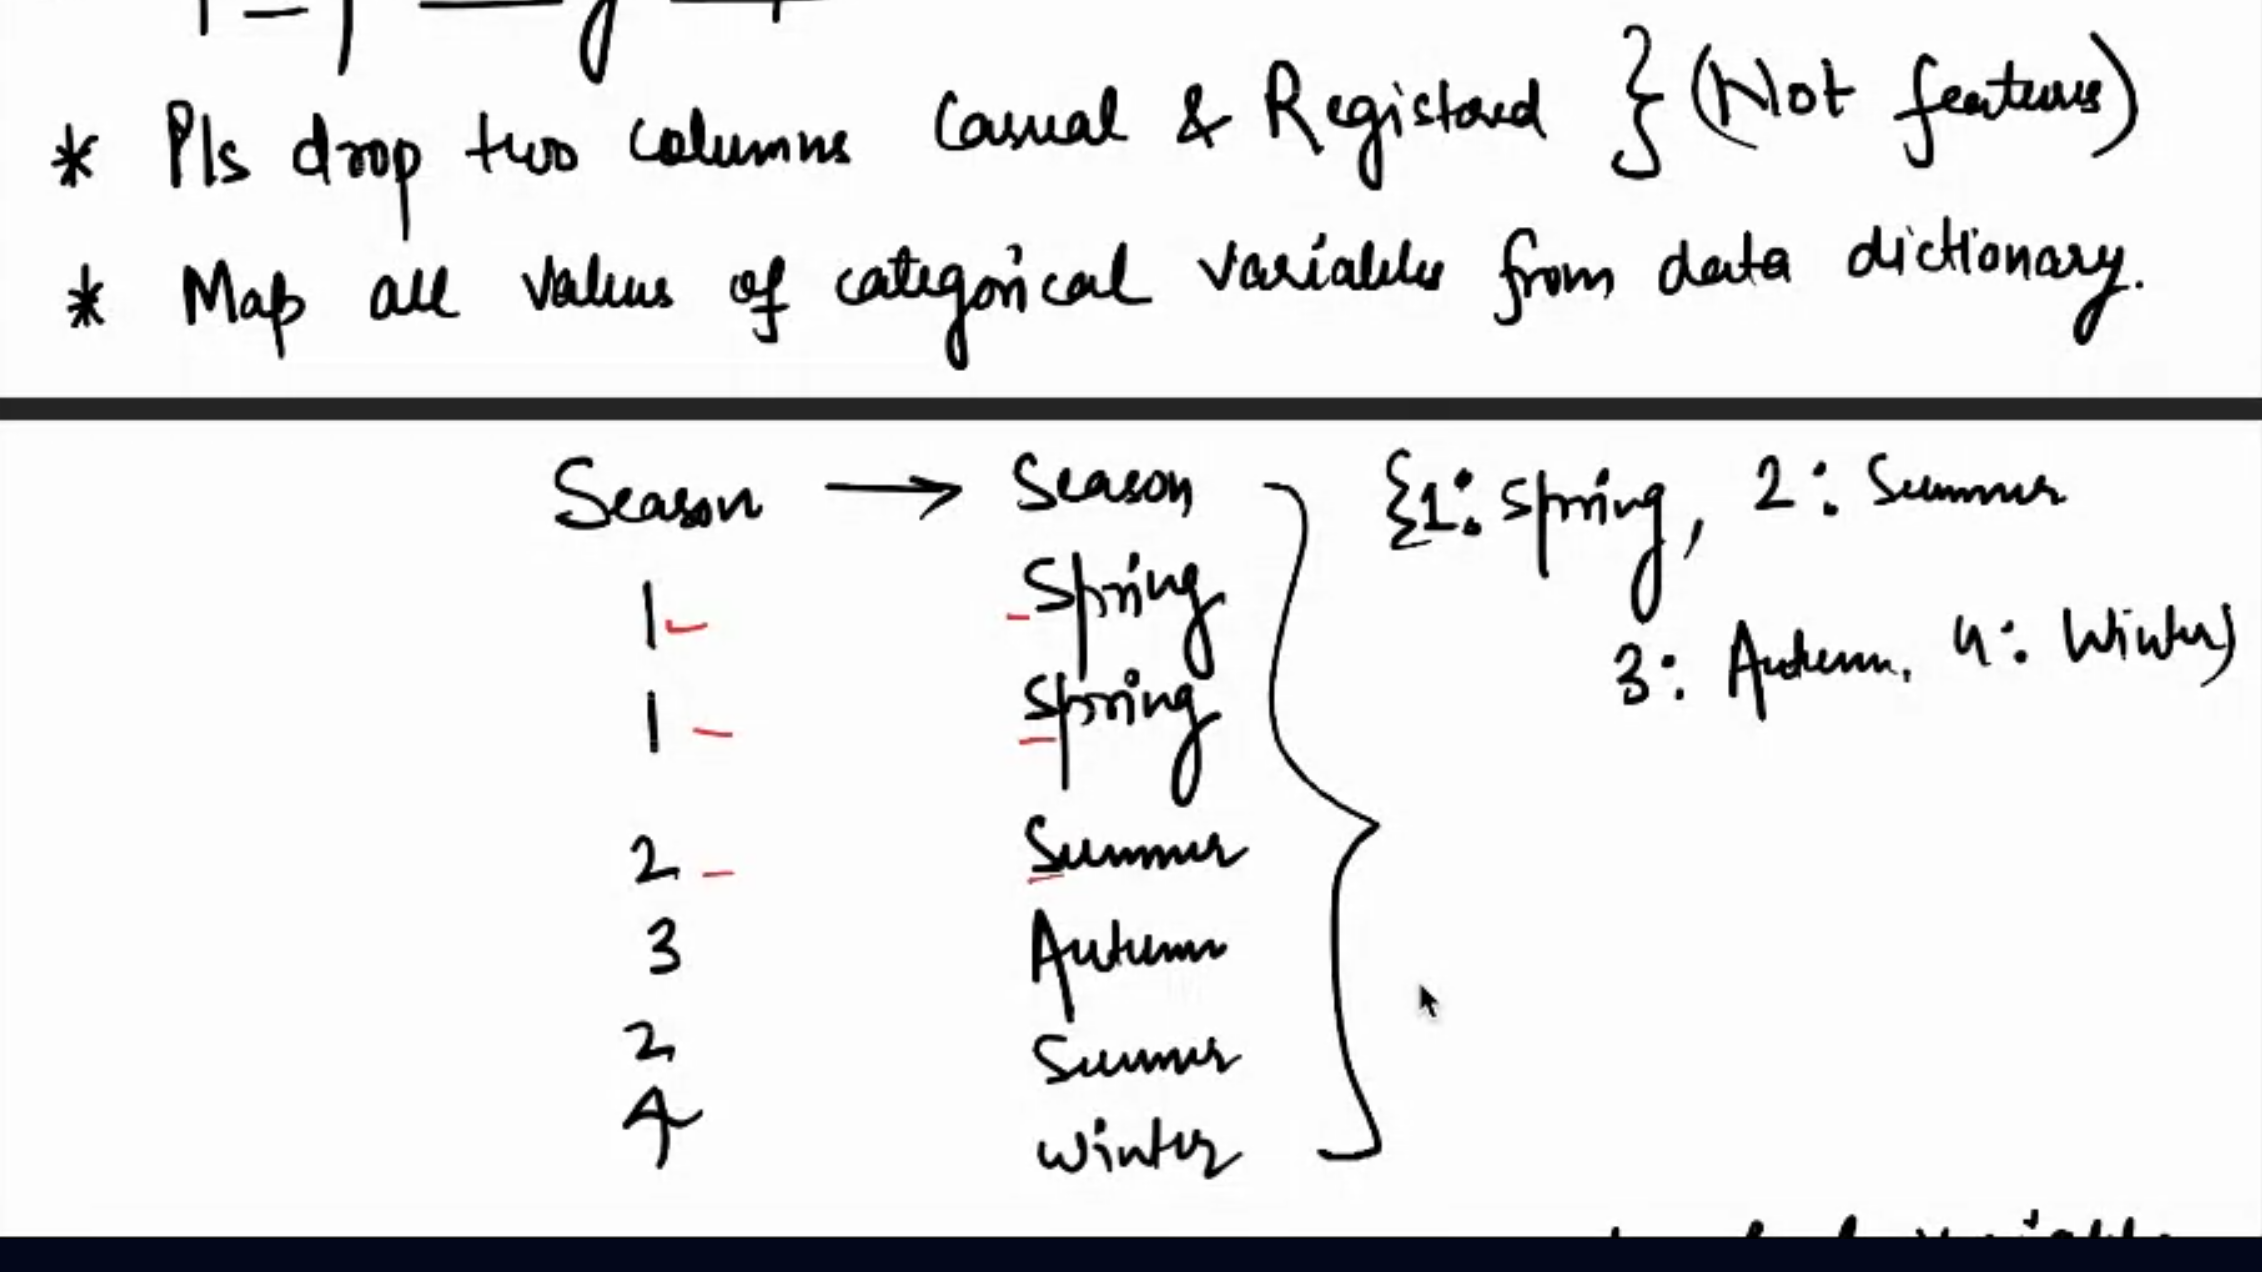 * Pls drop two columns Casual & Registered } (Not features)
* Map all values of categorical variables from data dictionary.
Season → Season {1: Spring, 2: Summer
3: Autumn, 4: Winter}
1 Spring
1 Spring
2 Summer
3 Autumn
2 Summer
4 Winter